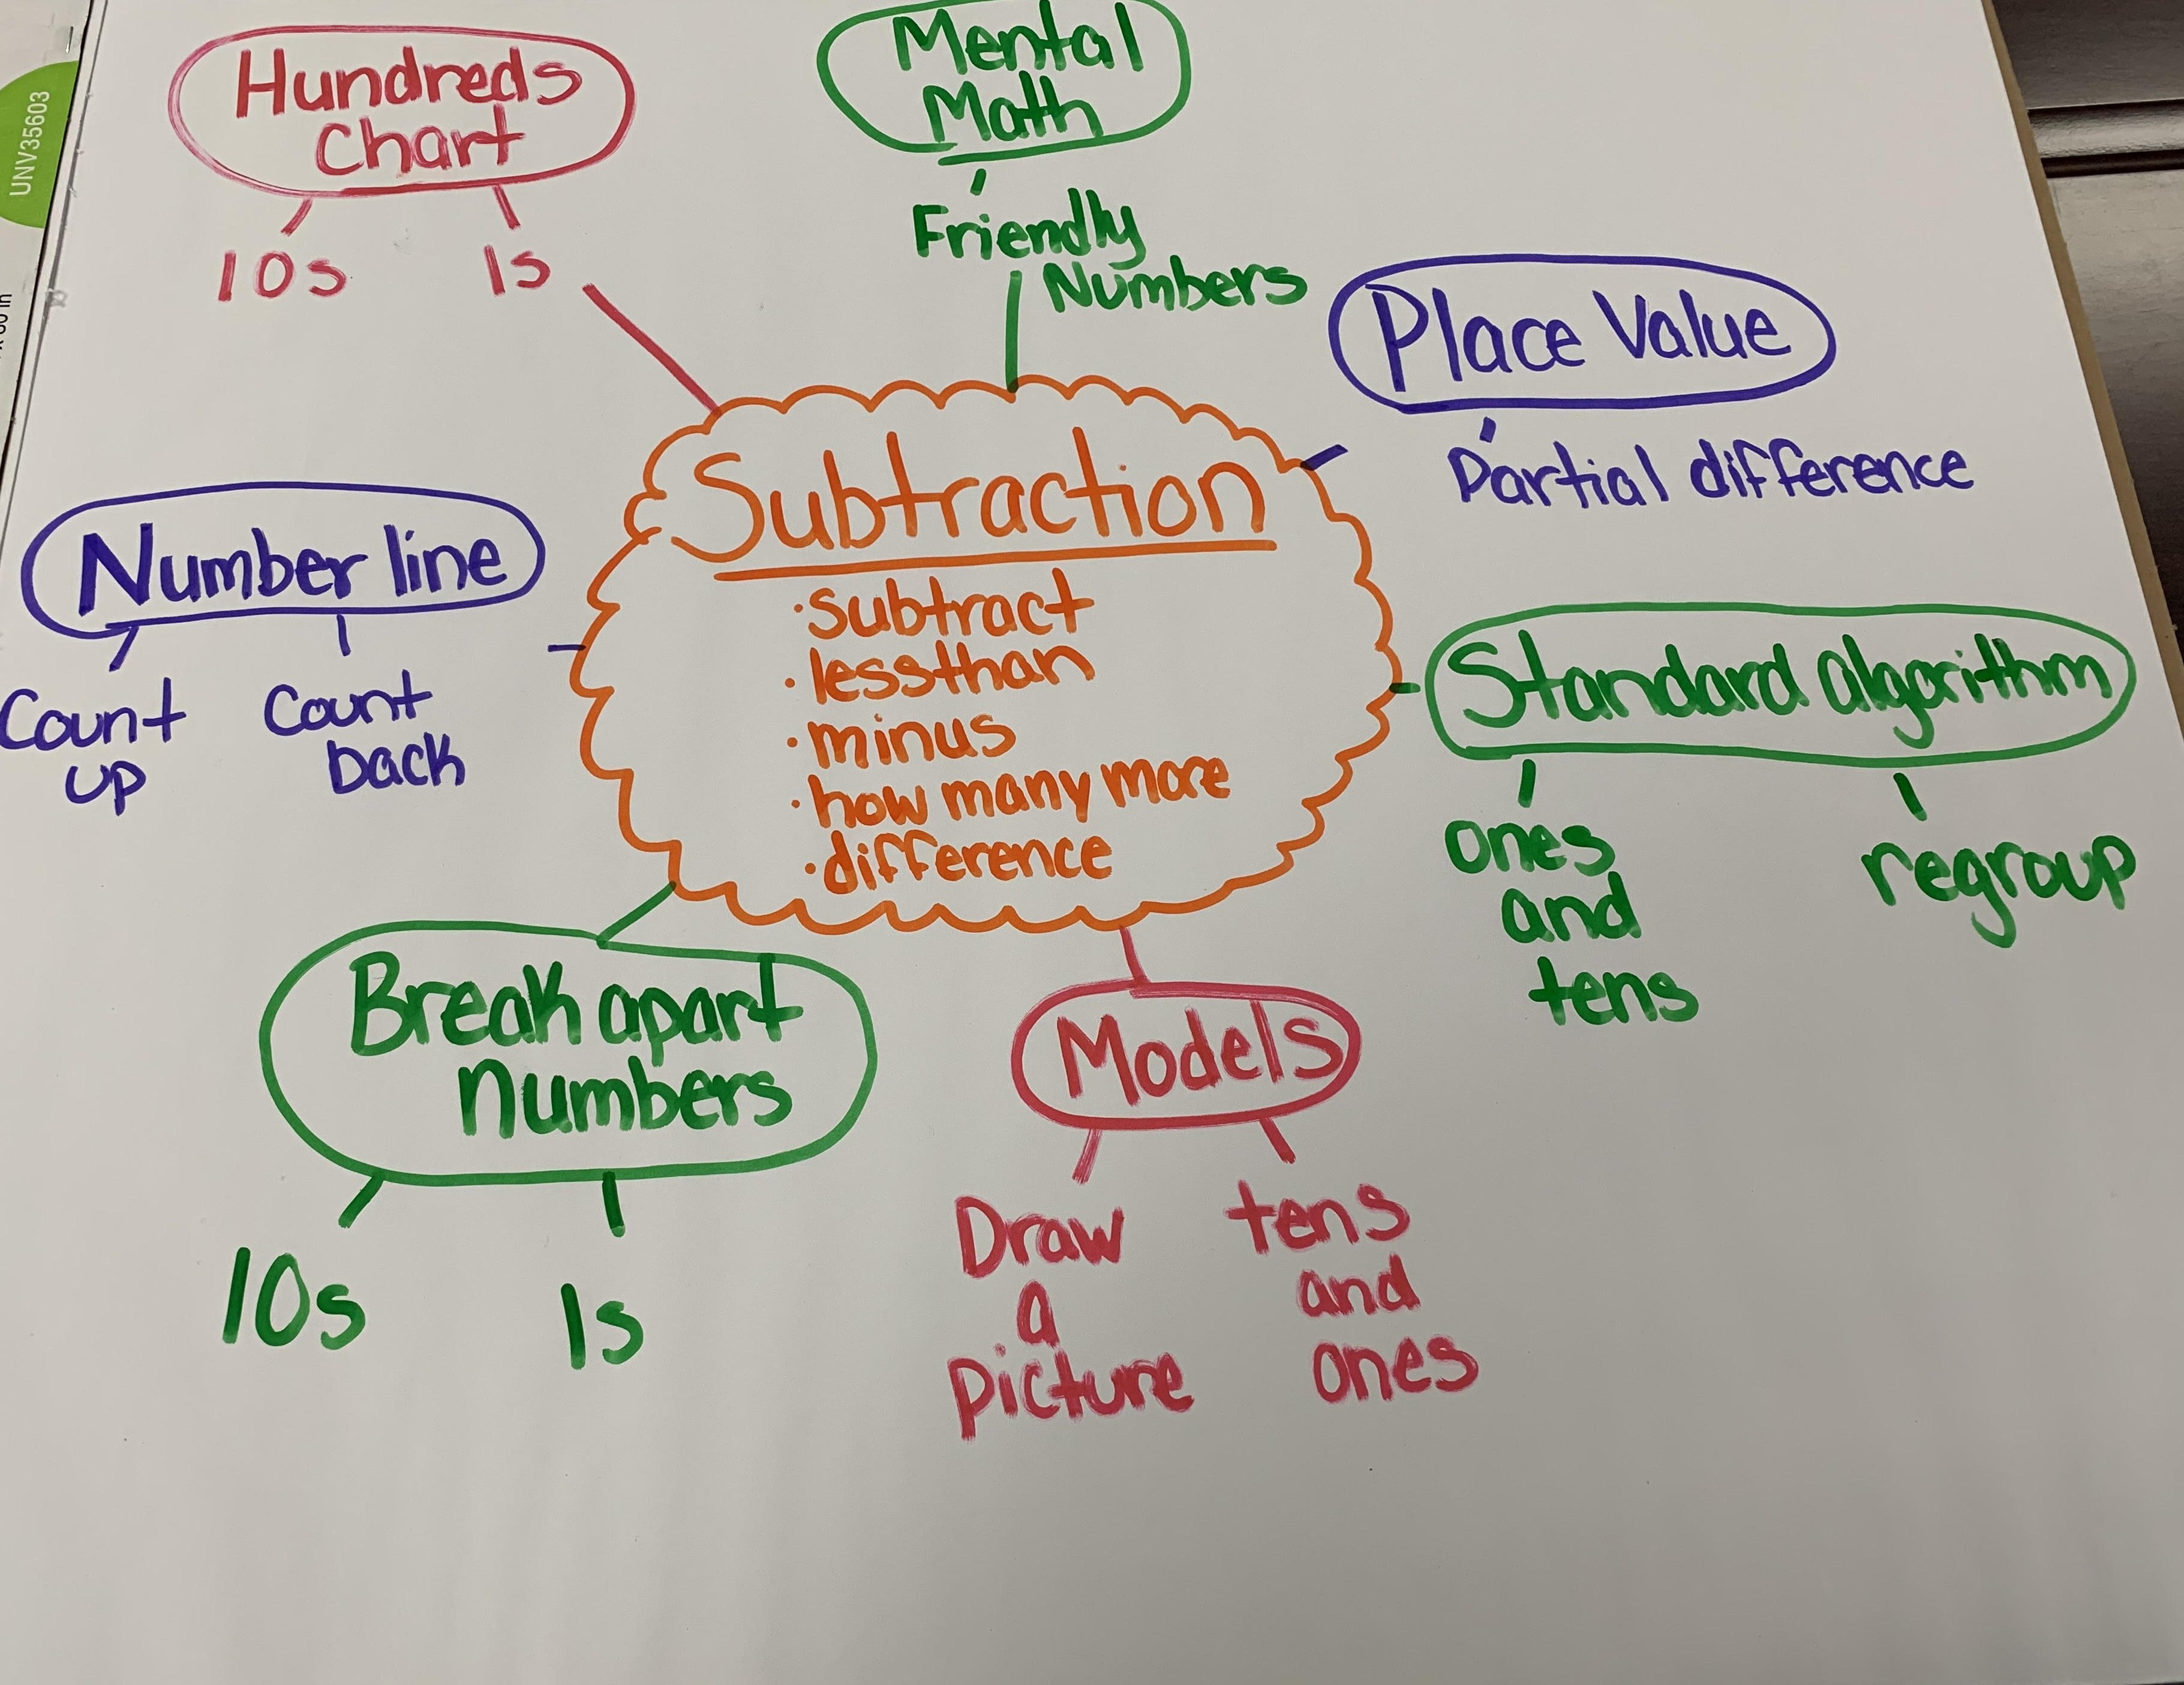 UNV35603
Hundreds
Chart
10s 1s
Mental
Math
Friendly
Numbers
Place Value
Partial difference
Number line
Count
up
Count
back
Subtraction
·subtract
·lessthan
·minus
·how many more
·difference
Standard algorithm
ones
and
tens
regroup
Break apart
numbers
10s 1s
Models
Draw
a
picture
tens
and
ones